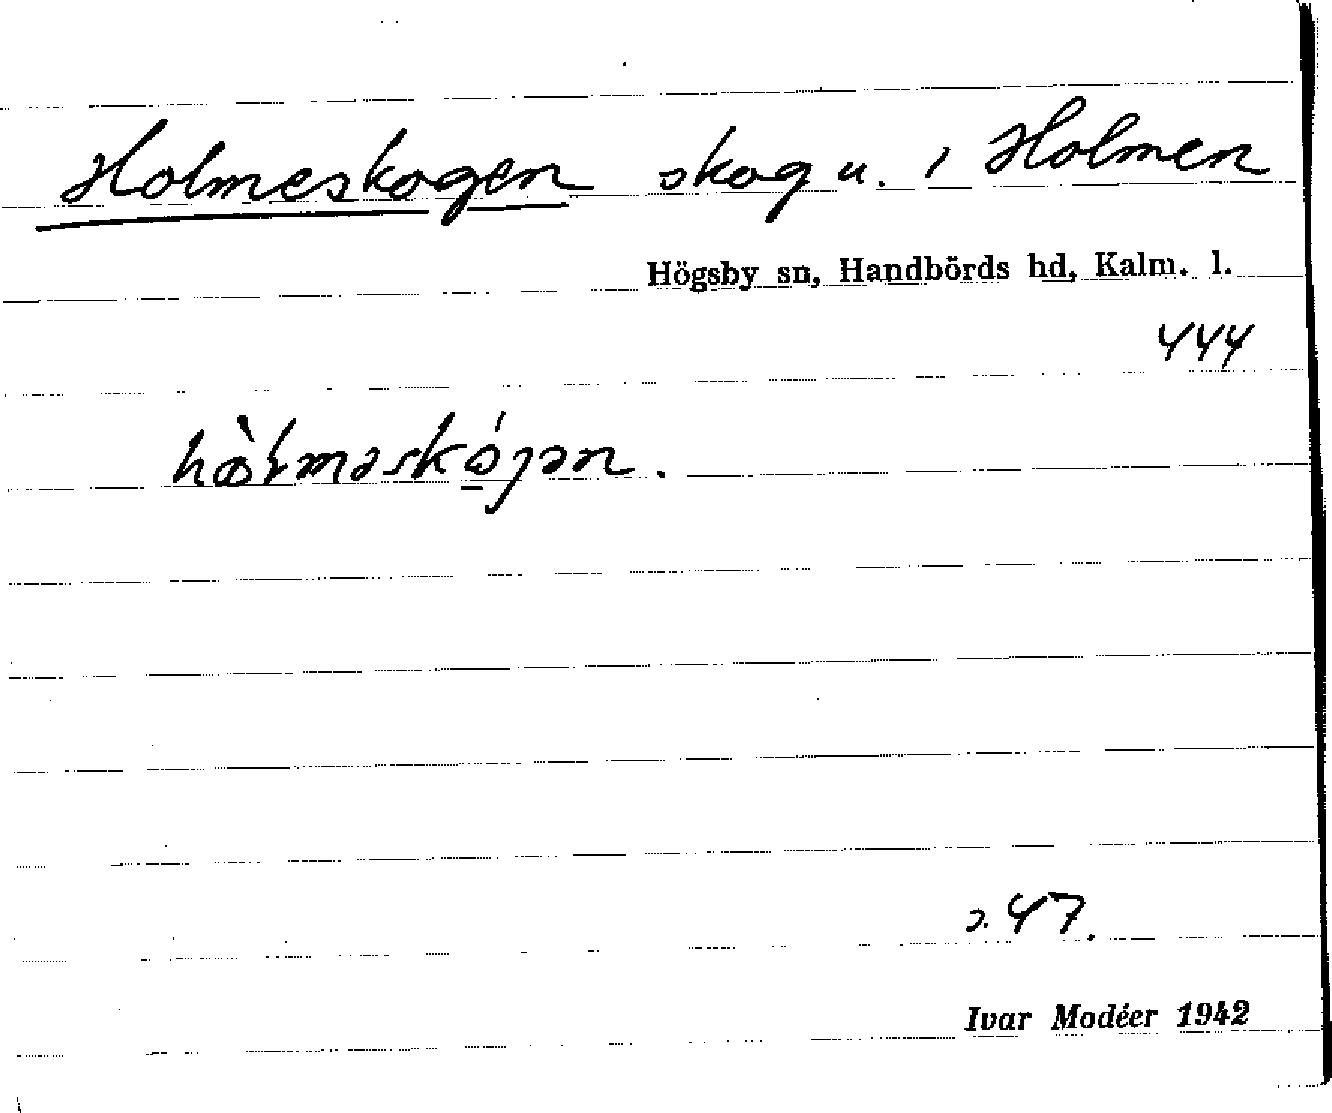 Holmeskogen skog u. 1 Holmen
Högsby sn, Handbörds hd, Kalm. l.
444
47.
Ivar Modéer 1942